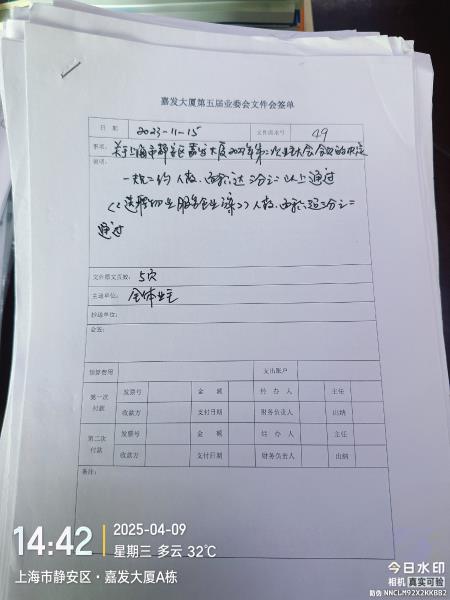 嘉发大厦第五届业委会文件会签单
日 期 2023-11-15 文件流水号 49
事项: 关于上海市静安区嘉发大厦2023年第二次业主大会会议的决定
说明: 一规二约人数、面积达三分之二以上通过
《选聘物业服务企业方案》人数、面积超三分之二
通过
文件原文页数: 5页
主送单位: 全体业主
抄送单位:
会签:
预算费用 支出账户
第一次付款 发票号 金 额 经 办 人 主任
收款方 支付日期 财务负责人 出纳
第二次付款 发票号 金 额 经 办 人 主任
收款方 支付日期 财务负责人 出纳
备注:
14:42 2025-04-09
星期三 多云 32℃
上海市静安区·嘉发大厦A栋
今日水印
相机 真实可验
防伪 NNCLM92X2KKBB2